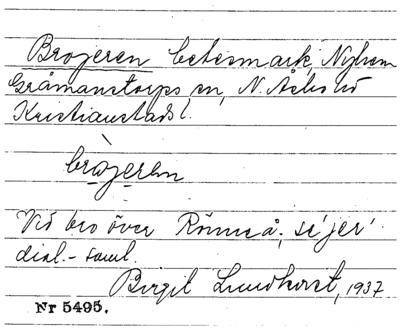 Brojeren betesmark, Nyhem
Gråmanstorps sn, N. Åsbo hd
Kristianstads l.
brojeren
Vid bro över Rönneå; se 'jer'
dial.-saml.
Birgit Lundkvist, 1937
Nr 5495.